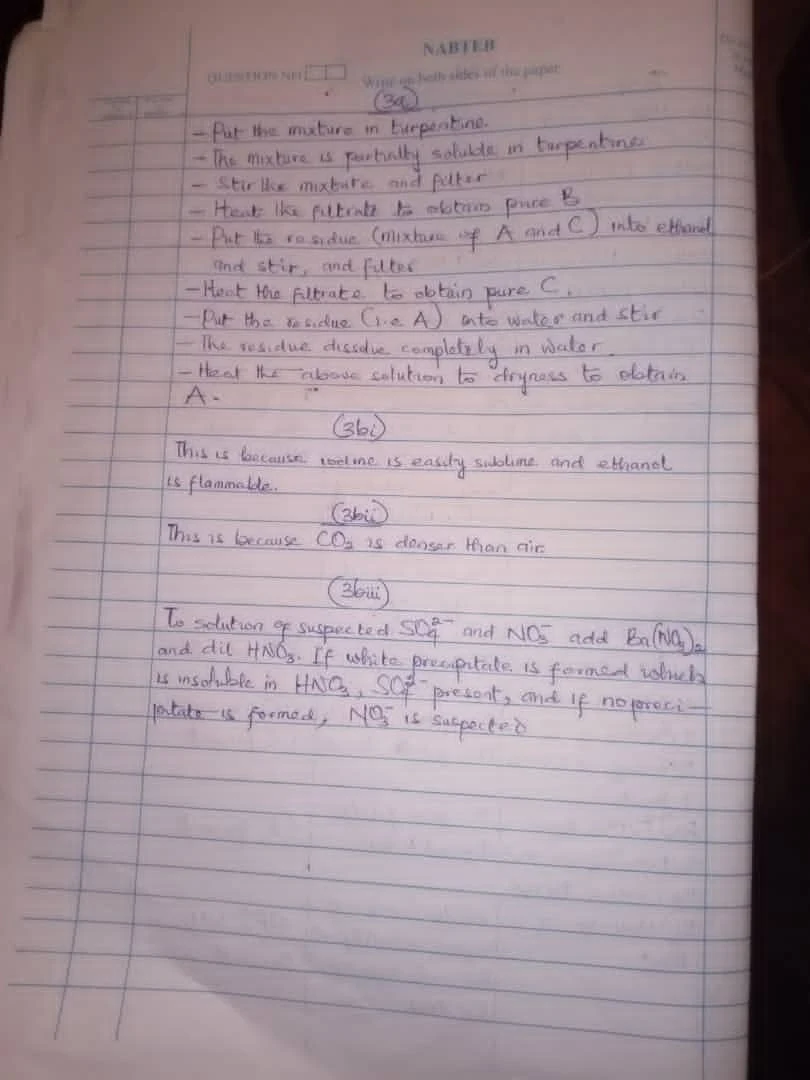 NABTEB
QUESTION NO:
Write on both sides of the paper
(3a)
- Put the mixture in turpentine.
- The mixture is partially soluble in turpentine
- Stir the mixture and filter
- Heat the filtrate to obtain pure B
- Put the residue (mixture of A and C) into ethanol
and stir, and filter
- Heat the filtrate to obtain pure C.
- Put the residue (i.e A) into water and stir
- The residue dissolve completely in water.
- Heat the above solution to dryness to obtain
A.
(3bi)
This is because iodine is easily sublime and ethanol
is flammable.
(3bii)
This is because CO₂ is denser than air.
(3biii)
To solution of suspected SO₄²⁻ and NO₃⁻ add Ba(NO₃)₂
and dil HNO₃. If white precipitate is formed which
is insoluble in HNO₃, SO₄²⁻ present, and if no preci-
pitate is formed, NO₃⁻ is suspected